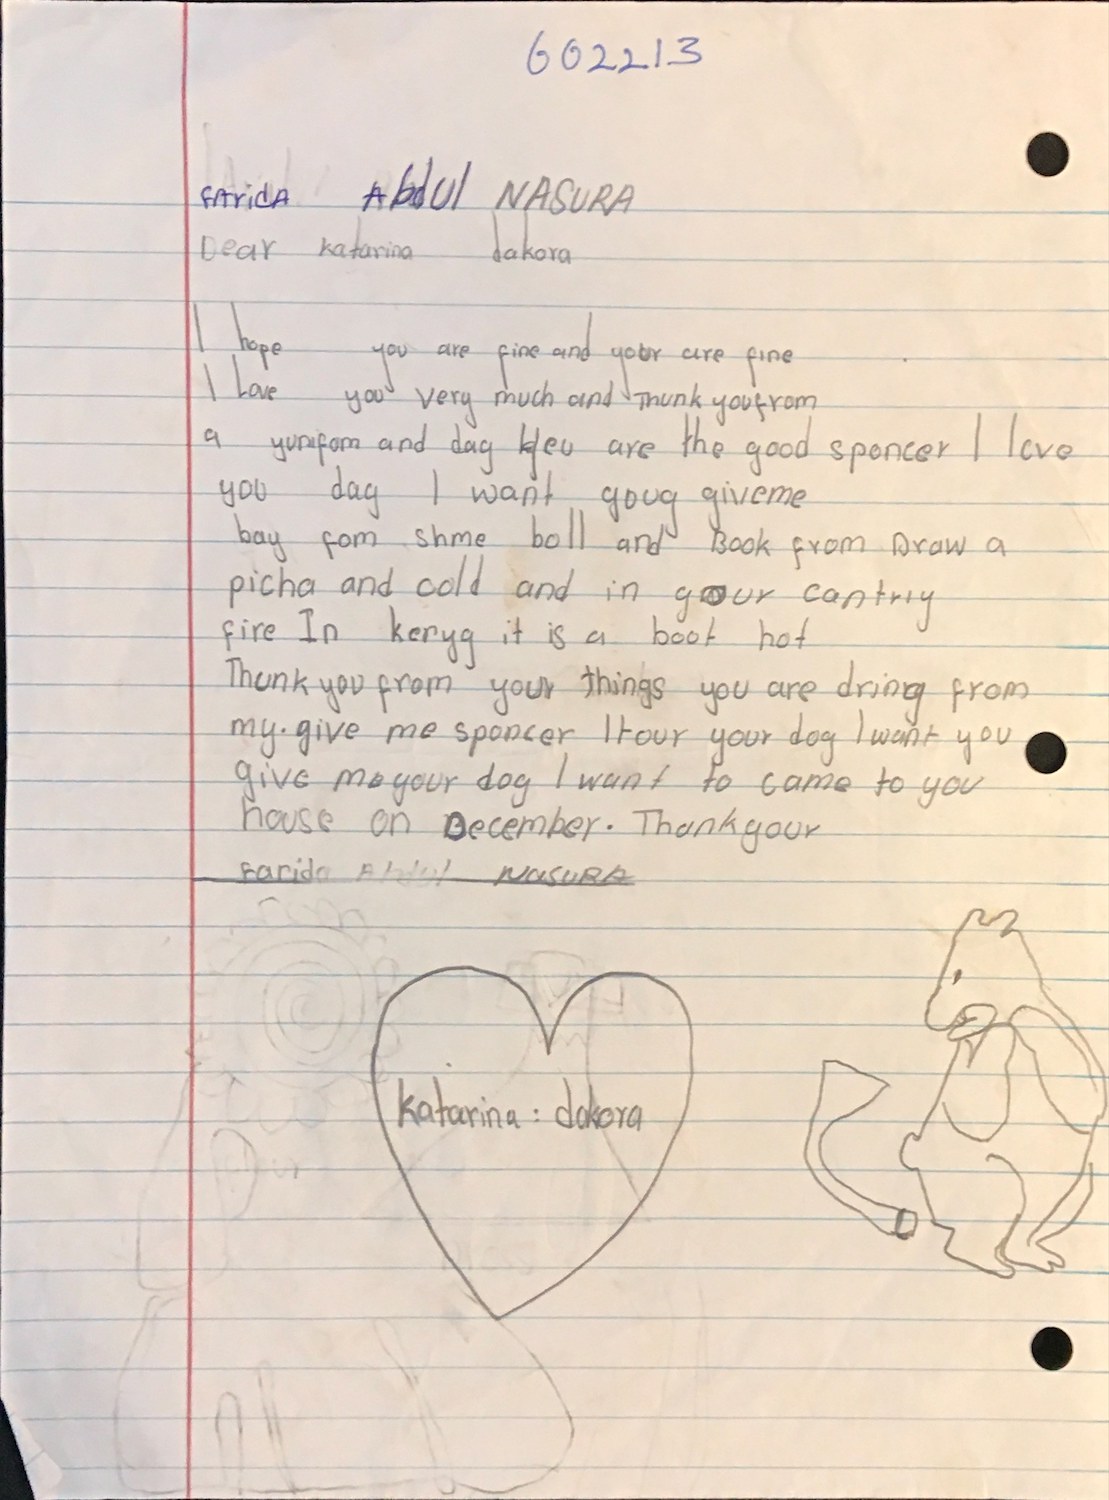 602213
FAridA Abdul NASURA
Dear katarina dakora
I hope you are fine and your are fine
I Love you very much and Thunk you from
a yunifom and dag you are the good sponcer I love
you dag I want goug giveme
bay fom shme boll and Book from Draw a
picha and cold and in gour cantriy
fire In kenyg it is a boot hot
Thunk you from your things you are dring from
my. give me sponcer I tour your dog I want you
give me your dog I want to came to you
house on December. Thankyour
Farida Abdul NASURA
katarina : dakora